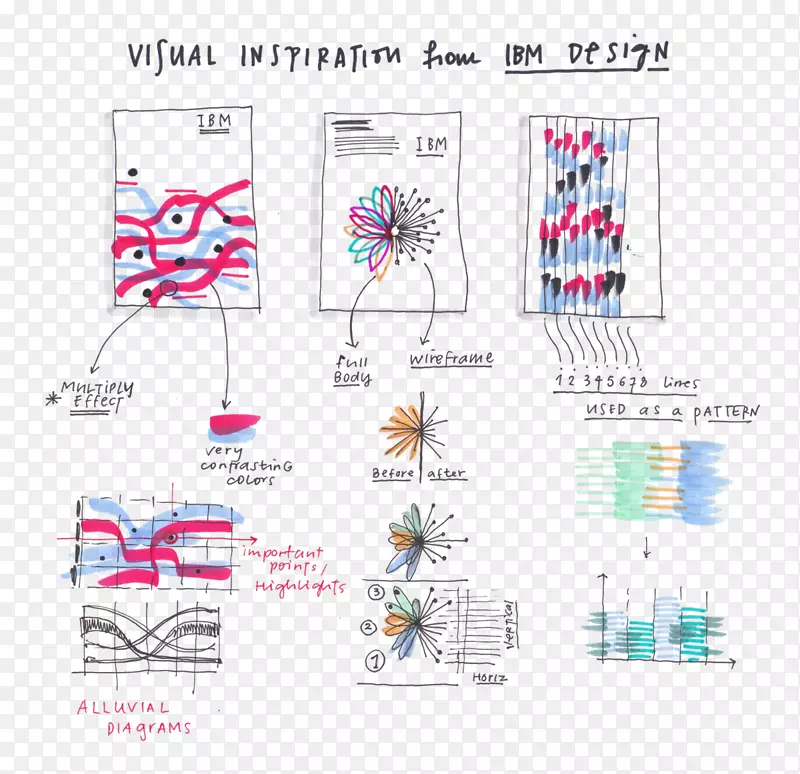 VISUAL INSPIRATION from IBM DESIGN
IBM
IBM
* MULTIPLY
EFFECT
full
Body
wireframe
1 2 3 4 5 6 7 8 lines
USED as a PATTERN
very
contrasting
colors
Before after
important
points/
HIGHLIGHTS
3
2
1
vertical
Horiz
ALLUVIAL
DIAGRAMS